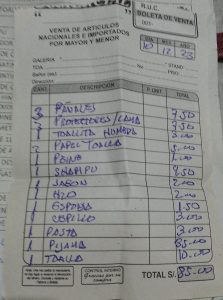 VENTA DE ARTICULOS
NACIONALES E IMPORTADOS
POR MAYOR Y MENOR
R.U.C.
BOLETA DE VENTA
001-
DIA MES AÑO
10 12 23
GALERIA:
TDA. No STAND
Señor (es): PISO
Dirección:
CANT. DESCRIPCIÓN P. UNIT. TOTAL
3 PAÑALES 7.50
PROTECTORES/CAMA 7.50
TOALLITA HUMEDA 3.00
2 PAPEL TOALLA
1 PEINE 1.00
1 SHAMPU
1 JABON 2.00
1 HZO 2.00
1 ESPONJA 1.50
1 CEPILLO 3.00
1 PASTA 3.00
1 PIJAMA 35.00
1 TOALLA 10.00
CONTROL INTERNO
Gracias por su compra
TOTAL S/. 85.00